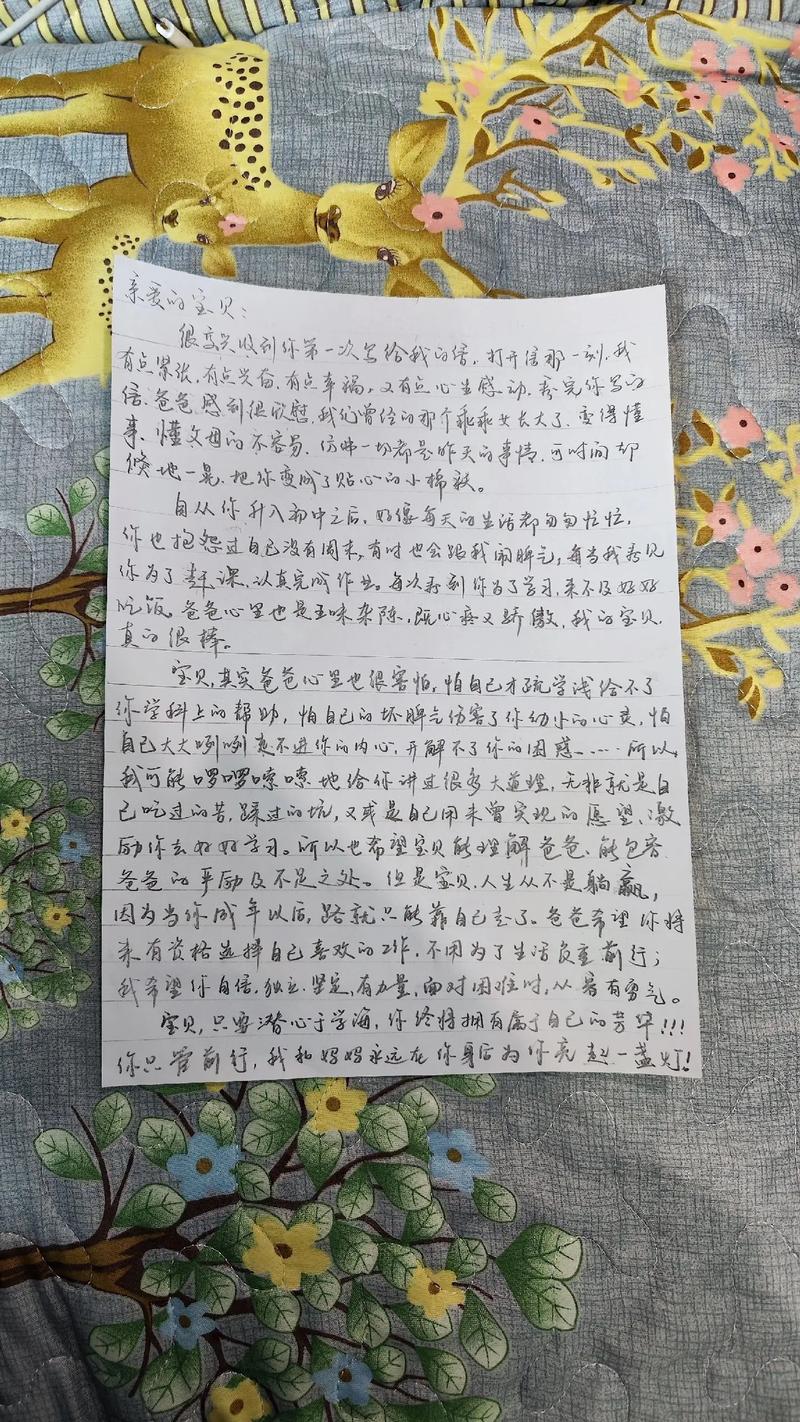 亲爱的宝贝:
很高兴收到你第一次写给我的信,打开信那一刻,我
有点紧张,有点兴奋,有点幸福,又有点心生感动,看完你写的
信,爸爸感到很欣慰,我们曾经的那个乖乖女长大了,变得懂
事、懂父母的不容易,仿佛一切都是昨天的事情,可时间却
倏地一晃,把你变成了贴心的小棉袄。
自从你升入初中之后,好像每天的生活都匆匆忙忙,
你也抱怨过自己没有周末,有时也会跟我闹脾气,每当我看见
你为了赶课,认真完成作业。每次看到你为了学习,来不及好好
吃饭。爸爸心里也是五味杂陈,既心疼又骄傲,我的宝贝,
真的很棒。
宝贝,其实爸爸心里也很害怕,怕自己才疏学浅给不了
你学科上的帮助,怕自己的坏脾气伤害了你幼小的心灵,怕
自己大大咧咧走不进你的内心,开解不了你的困惑……所以,
我可能啰啰嗦嗦地给你讲过很多大道理,无非就是自
己吃过的苦,踩过的坑,又或是自己用未曾实现的愿望、激
励你去好好学习。所以也希望宝贝能理解爸爸、能包容
爸爸的严励及不足之处。但是宝贝,人生从不是躺赢,
因为当你成年以后,路就只能靠自己走了。爸爸希望你将
来有资格选择自己喜欢的工作,不用为了生活负重前行;
我希望你自信,独立,坚定,有力量,面对困难时,从容有勇气。
宝贝,只要潜心于学海,你终将拥有属于自己的芳华!!!
你只管前行,我和妈妈永远在你身后为你亮起一盏灯!